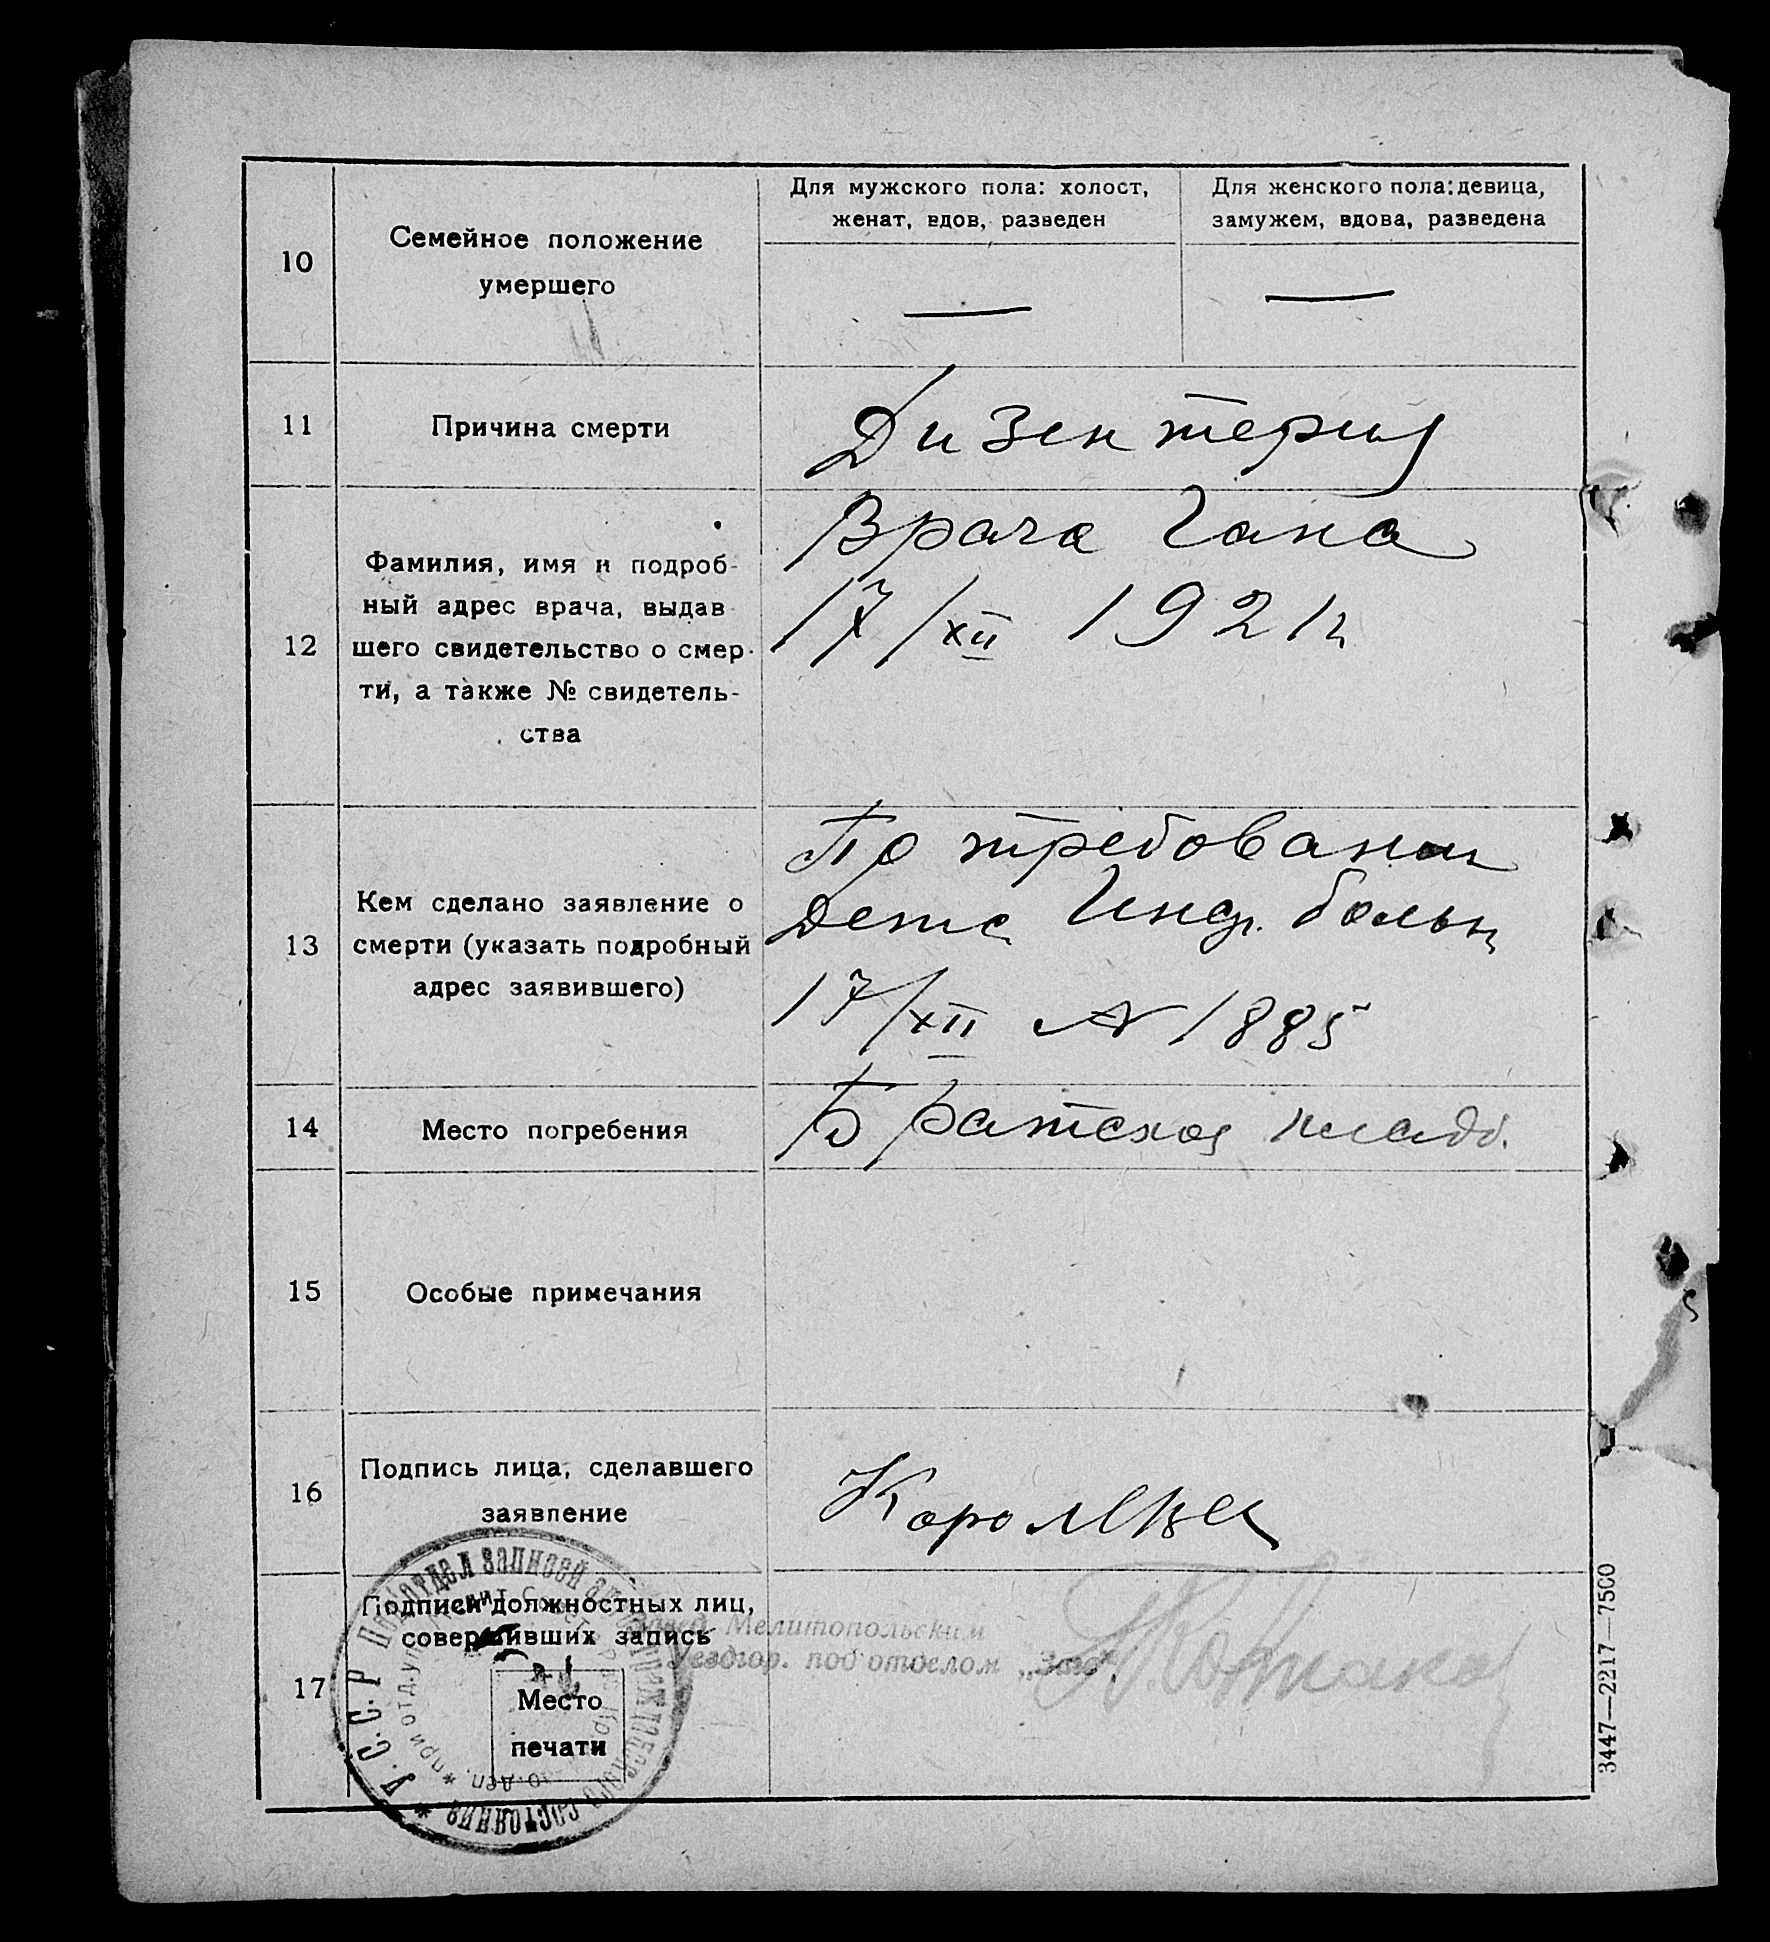 10
Семейное положение
умершего
Для мужского пола: холост,
женат, вдов, разведен
Для женского пола: девица,
замужем, вдова, разведена
— —
11
Причина смерти
Дизентерия
12
Фамилия, имя и подроб-
ный адрес врача, выдав
шего свидетельство о смер-
ти, а также № свидетель-
ства
Врача Гана
17/XII 1921 г
13
Кем сделано заявление о
смерти (указать подробный
адрес заявившего)
По требованию
Детс Инф. больн
17/XII № 1885
14
Место погребения
Братская кладб.
15
Особые примечания
16
Подпись лица, сделавшего
заявление
17
Подписи должностных лиц,
совершивших запись
Место
печати
Завед. Мелитопольским
Уездгор. под'отделом „Загс".
У.С.С.Р Подотдел записей актов гражданского состояния *
3447—2217—7500